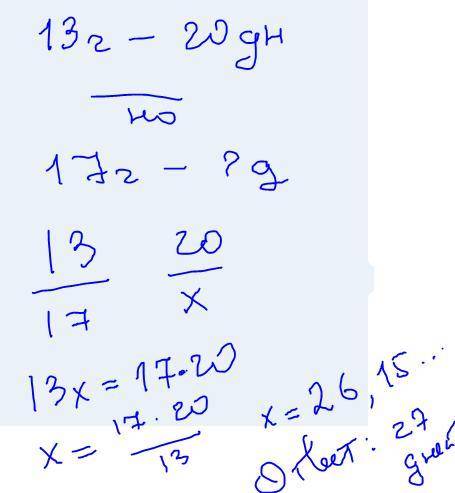 13г – 20 дн
но
17г – ? д
13 20
17 x
13x = 17·20
x = 17·20
13
x = 26,15...
Ответ: 27
дней